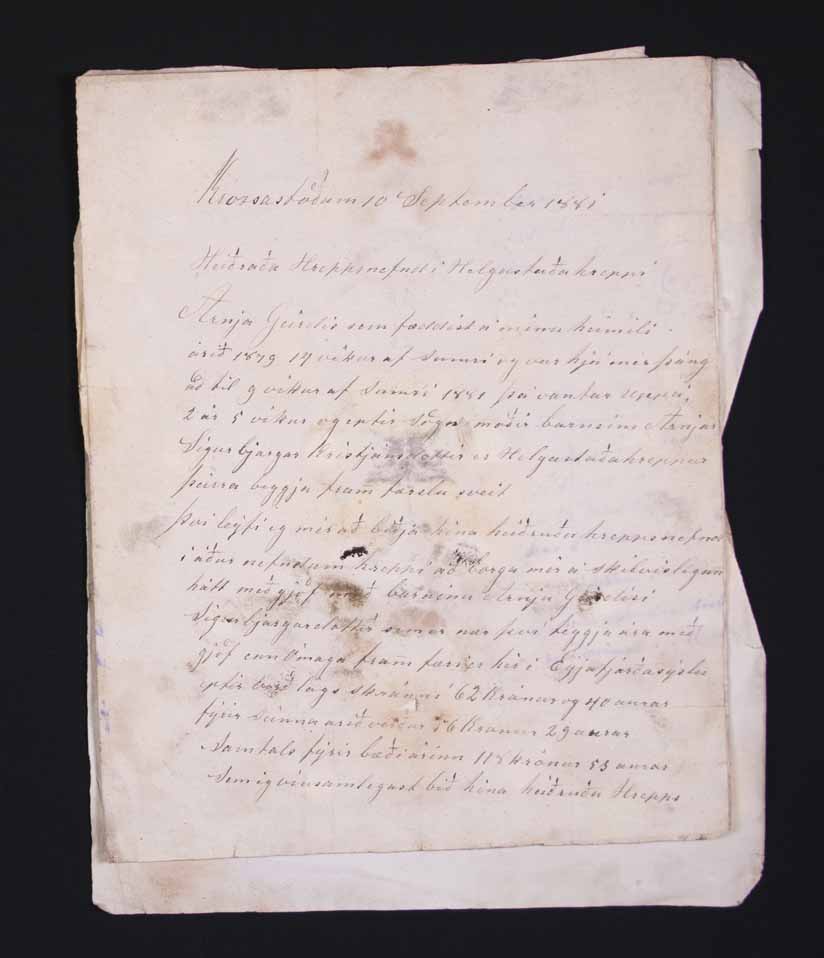 Krossastöðum 10 September 1881
Heiðraða Hreppsnefnd i Helgastaðahreppi
Arnja Geirdís sem fæddist á mínu heimili
árið 1879 14 vikur af Sumri og var hjá mér þáng
að til 9 vikkur af Sumri 1881 þá vantar uppá
2 ár 5 vikur og eptir Sögn móðir barnsins Arnjar
Sigurbjargar Kristjánsdottir er Helgastaðahreppur
þeirra beggja fram færslu sveit
því leyfi eg mér að biðja hina heiðruðu hreppsnefnd
i áður nefndum hreppi að borga mér á skilvislegan
hátt með gjöf með barnenu Arnja Geirdísi
Sigurbjargardottir semer nær því tveggja ára með
gjöf enn Ómaga fram færier hér i Eyjafjarðasyslu
eptir lags skránni 62 Krónur og 40 aurar
fyrir Seinna arið verður 56 Kronur 29 aurar
Samtals fyrir bæði árinn 118 krónur 53 aurar
Sem eg vinsamlegast bið hina heiðruðu Hrepps